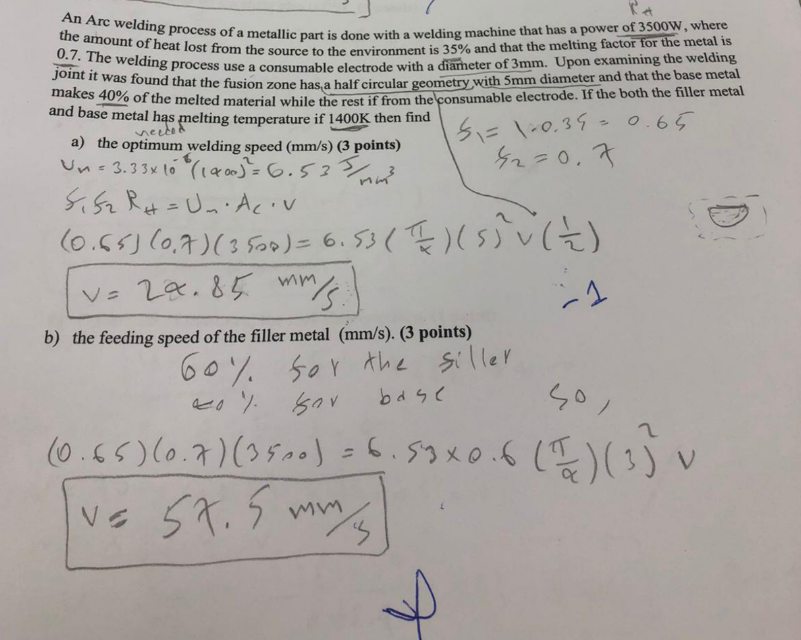 R_H
An Arc welding process of a metallic part is done with a welding machine that has a power of 3500W, where
the amount of heat lost from the source to the environment is 35% and that the melting factor for the metal is
0.7. The welding process use a consumable electrode with a diameter of 3mm. Upon examining the welding
joint it was found that the fusion zone has a half circular geometry with 5mm diameter and that the base metal
makes 40% of the melted material while the rest if from the consumable electrode. If the both the filler metal
and base metal has melting temperature if 1400K then find
f1 = 1-0.35 = 0.65
f2 = 0.7
a) the optimum welding speed (mm/s) (3 points)
Um = 3.33x10^-6 (1400)^2 = 6.53 J/mm^3
f1 f2 R_H = Um . Ac . v
(0.65)(0.7)(3500) = 6.53 (π/4)(5)^2 v (1/2)
v = 24.85 mm/s
-1
b) the feeding speed of the filler metal (mm/s). (3 points)
60% for the filler
40% for base so,
(0.65)(0.7)(3500) = 6.53 x 0.6 (π/4)(3)^2 v
v = 57.5 mm/s